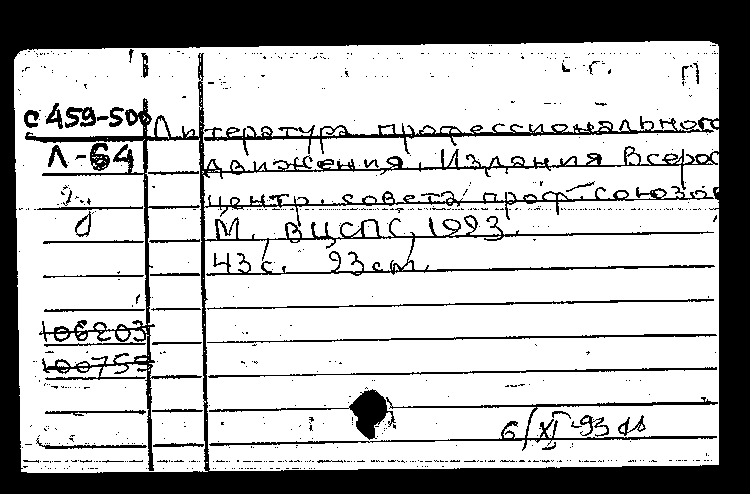 П
С 459-500
Литература профессионального
Л-64
движения. Издания Всерос
центр. совета проф. союзов
М., ВЦСПС, 1923.
43 с. 23 cm.
106203
100755
6/XI-93